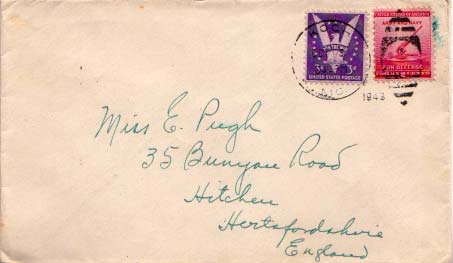 ROCH
MICH
1943
WIN THE WAR
3¢ 3¢
UNITED STATES POSTAGE
UNITED STATES OF AMERICA
ARMY AND NAVY
FOR DEFENSE
CENTS
Miss E. Pugh
35 Bunyan Road
Hitchen
Hertsfordshire
England